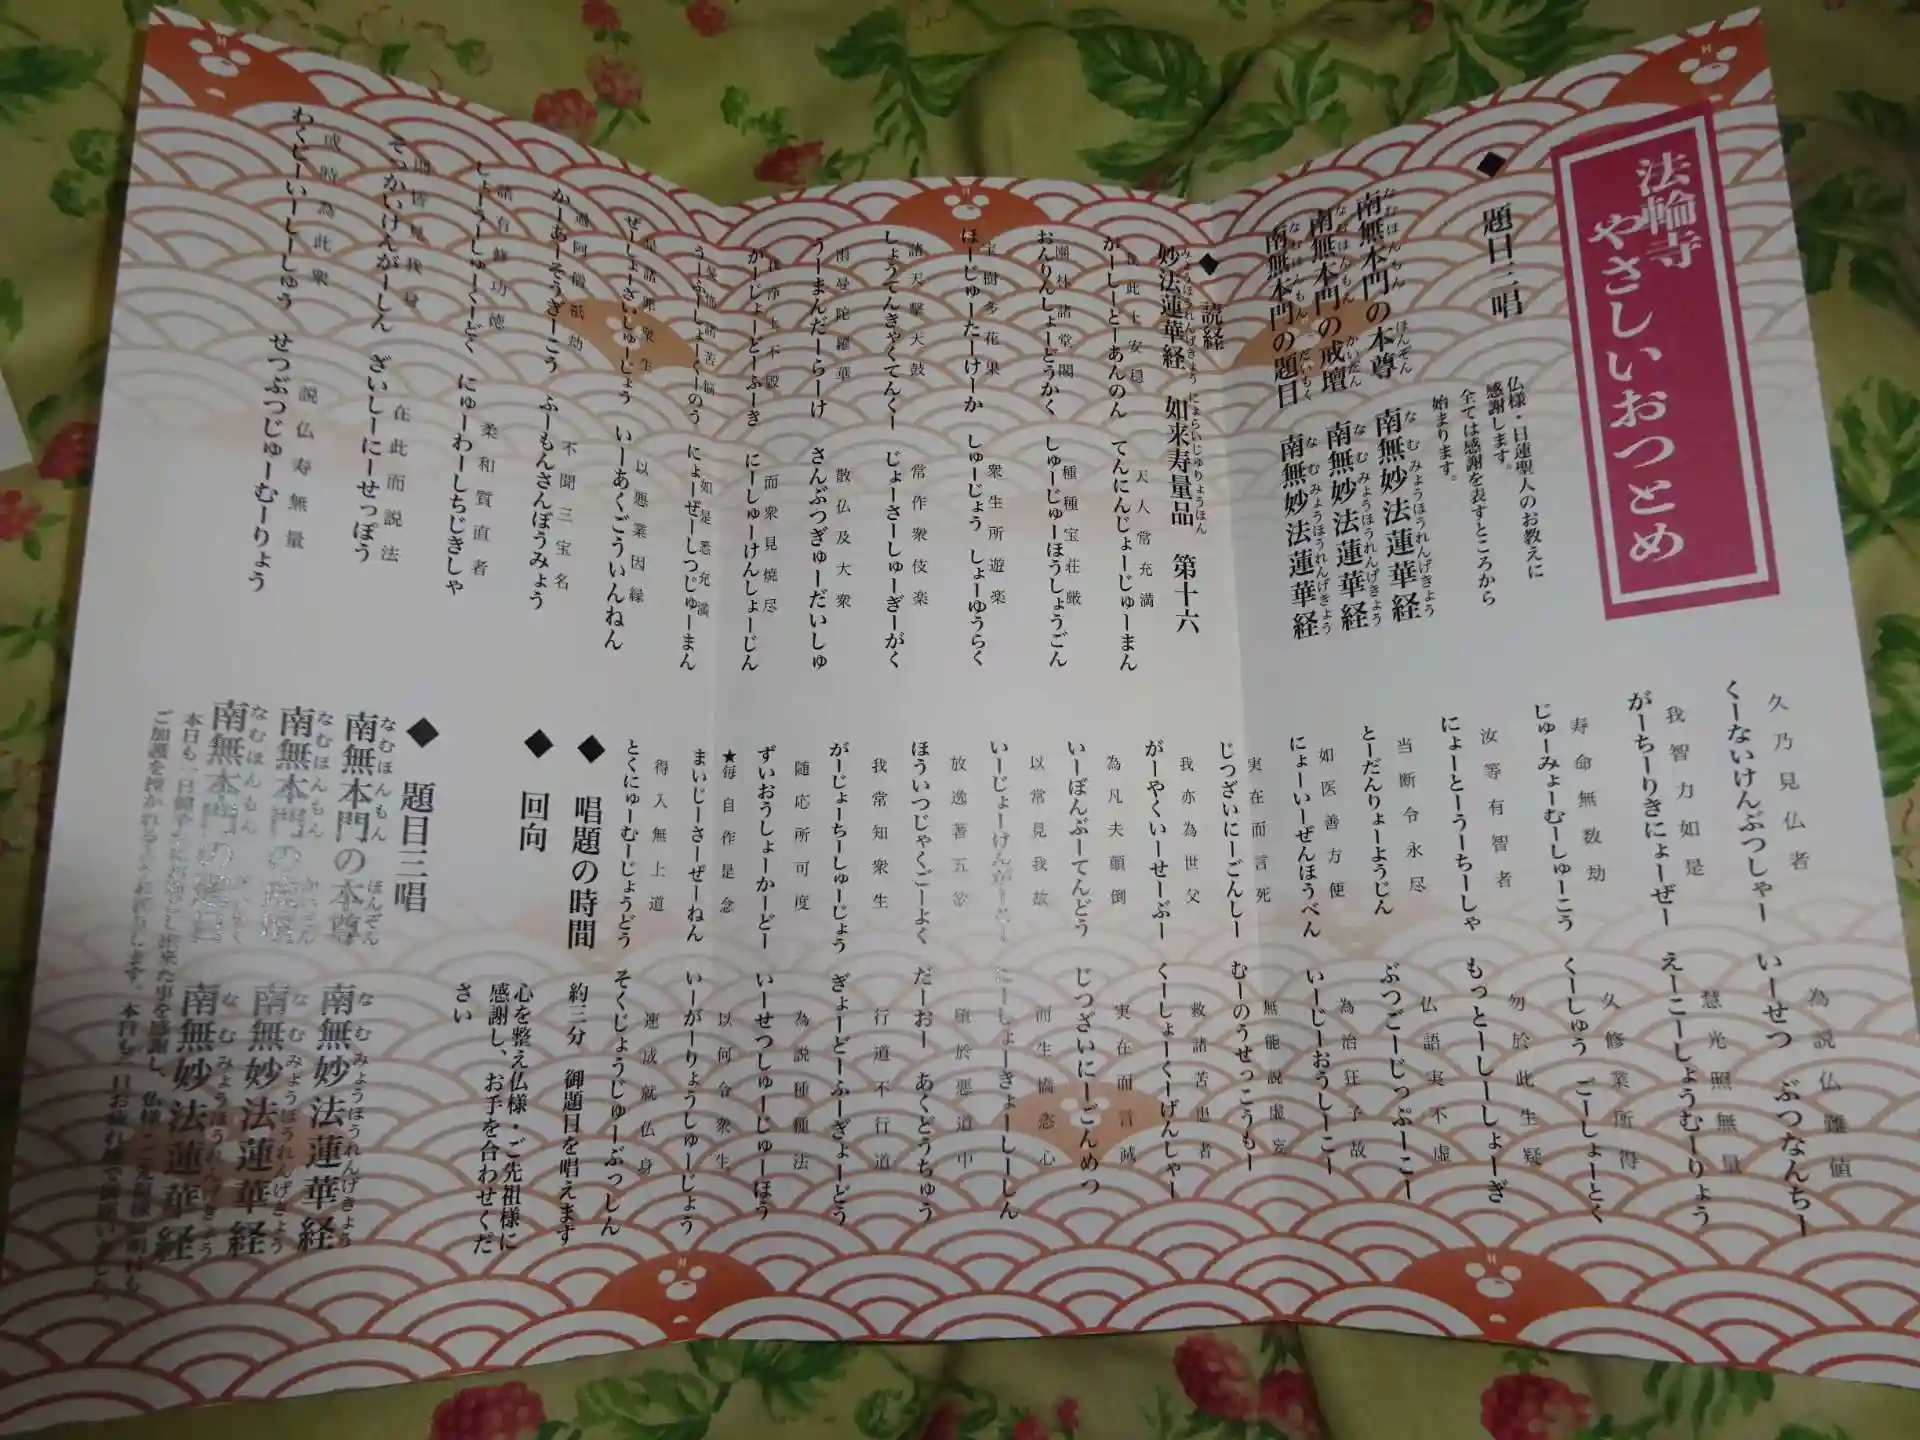 法輪寺
やさしいおつとめ
◆ 題目三唱
仏様・日蓮聖人のお教えに
感謝します。
全ては感謝を表すところから
始まります。
南無本門の本尊 南無妙法蓮華経
なむほんもん ほんぞん なむみょうほうれんげきょう
南無本門の戒壇 南無妙法蓮華経
なむほんもん かいだん なむみょうほうれんげきょう
南無本門の題目 南無妙法蓮華経
なむほんもん だいもく なむみょうほうれんげきょう
◆ 読経
妙法蓮華経 如来寿量品 第十六
みょうほうれんげきょう にょらいじゅりょうほん
我此土安穏 天人常充満
がーしーどーあんのん てんにんじょーじゅーまん
園林諸堂閣 種種宝荘厳
おんりんしょーどうかく しゅーじゅーほうしょうごん
宝樹多花果 衆生所遊楽
ほーじゅーたーけーか しゅーじょう しょーゆうらく
諸天撃天鼓 常作衆伎楽
しょうてんきゃくてんくー じょーさーしゅーぎーがく
雨曼陀羅華 散仏及大衆
うーまんだーらーけ さんぶつぎゅーだいしゅ
我浄土不毀 而衆見焼尽
がーじょーどーふーき にーしゅーけんしょーじん
憂怖諸苦悩 如是悉充満
うーふーしょーくーのう にょーぜーしつじゅーまん
是諸罪衆生 以悪業因縁
ぜーしょーざいしゅーじょう いーあくごういんねん
過阿僧祇劫 不聞三宝名
かーあーそうぎーこう ふーもんさんぼうみょう
諸有修功徳 柔和質直者
しょーうーしゅーくーどく にゅーわーしちじきしゃ
則皆見我身 在此而説法
そっかいけんがーしん ざいしーにーせっぽう
或時為此衆 説仏寿無量
わくじーいーしーしゅう せつぶつじゅーむーりょう
久乃見仏者 為説仏難値
くーないけんぶつしゃー いーせつ ぶつなんちー
我智力如是 慧光照無量
がーちーりきにょーぜー えーこーしょうむーりょう
寿命無数劫 久修業所得
じゅーみょーむーしゅーこう くーしゅう ごーしょーとく
汝等有智者 勿於此生疑
にょーとーうーちーしゃ もっとーしーしょーぎ
当断令永尽 仏語実不虚
とーだんりょーようじん ぶつごーじっぷーこー
如医善方便 為治狂子故
にょーいーぜんほうべん いーじーおうしーこー
実在而言死 無能説虚妄
じつざいにーごんしー むーのうせっこうもー
我亦為世父 救諸苦患者
がーやくいーせーぶー くーしょーくーげんしゃー
為凡夫顛倒 実在而言滅
いーぼんぶーてんどう じつざいにーごんめつ
以常見我故 而生憍恣心
いーじょーけんがーこー にーしょーきょーしーしん
放逸著五欲 堕於悪道中
ほういつじゃくごーよく だーおー あくどうちゅう
我常知衆生 行道不行道
がーじょーちーしゅーじょう ぎょーどーふーぎょーどう
随応所可度 為説種種法
ずいおうしょーかーどー いーせつしゅーじゅーほう
★毎自作是念 以何令衆生
まいじーさーぜーねん いーがーりょうしゅーじょう
得入無上道 速成就仏身
とくにゅーむーじょうどう そくじょうじゅーぶっしん
◆ 唱題の時間 約三分 御題目を唱えます
◆ 回向 心を整え仏様・ご先祖様に
感謝し、お手を合わせくだ
さい
◆ 題目三唱
南無本門の本尊 南無妙法蓮華経
なむほんもん ほんぞん なむみょうほうれんげきょう
南無本門の戒壇 南無妙法蓮華経
なむほんもん かいだん なむみょうほうれんげきょう
南無本門の題目 南無妙法蓮華経
なむほんもん なむみょうほうれんげきょう
本日も一日 出来た事を感謝し、仏様・ご先祖様
ご加護を